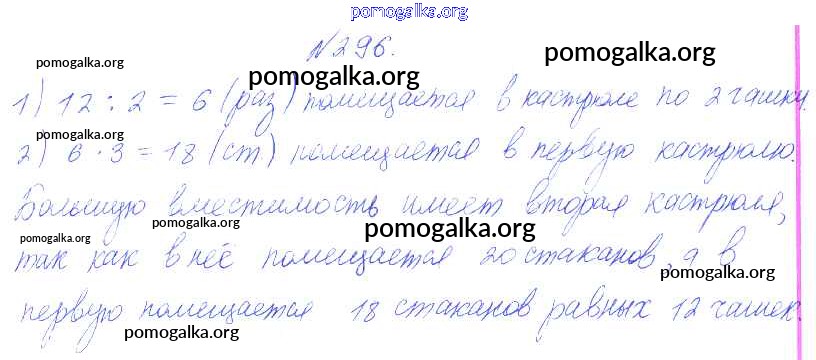 pomogalka.org
№296.
pomogalka.org pomogalka.org pomogalka.org
1) 12 : 2 = 6 (раз) помещается в кастрюле по 2 чашки.
pomogalka.org
2) 6 · 3 = 18 (ст.) помещается в первую кастрюлю.
Большую вместимость имеет вторая кастрюля,
pomogalka.org pomogalka.org
так как в неё помещается 20 стаканов, а в
pomogalka.org
первую помещается 18 стаканов равных 12 чашек.
pomogalka.org